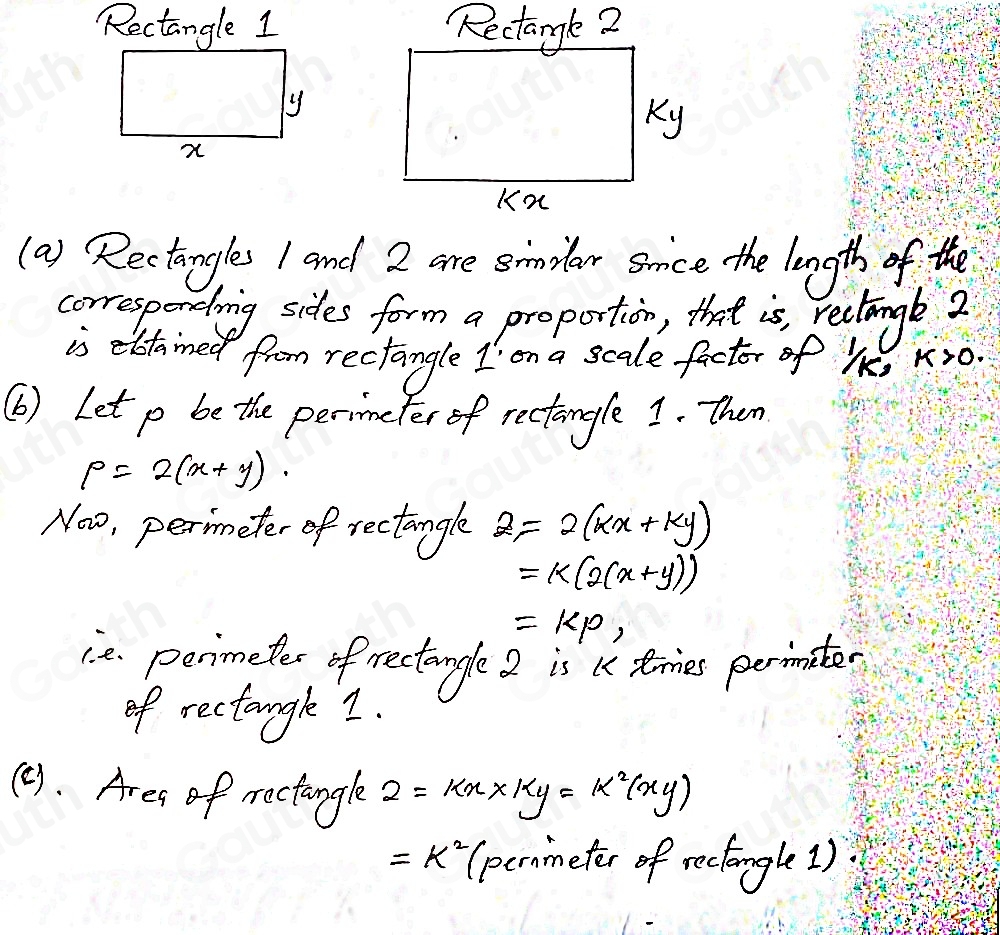 Rectangle 1 Rectangle 2
y
Ky
x
Kx
(a) Rectangles 1 and 2 are similar since the length of the
corresponding sides form a proportion, that is, rectangle 2
is obtained from rectangle 1 on a scale factor of 1/K, K>0.
(b) Let p be the perimeter of rectangle 1. Then
P = 2(x+y).
Now, perimeter of rectangle 2 = 2(Kx+Ky)
= K(2(x+y))
= Kp,
i.e. perimeter of rectangle 2 is K times perimeter
of rectangle 1.
(c). Area of rectangle 2 = Kx × Ky = K²(xy)
= K²(perimeter of rectangle 1).
Gauth